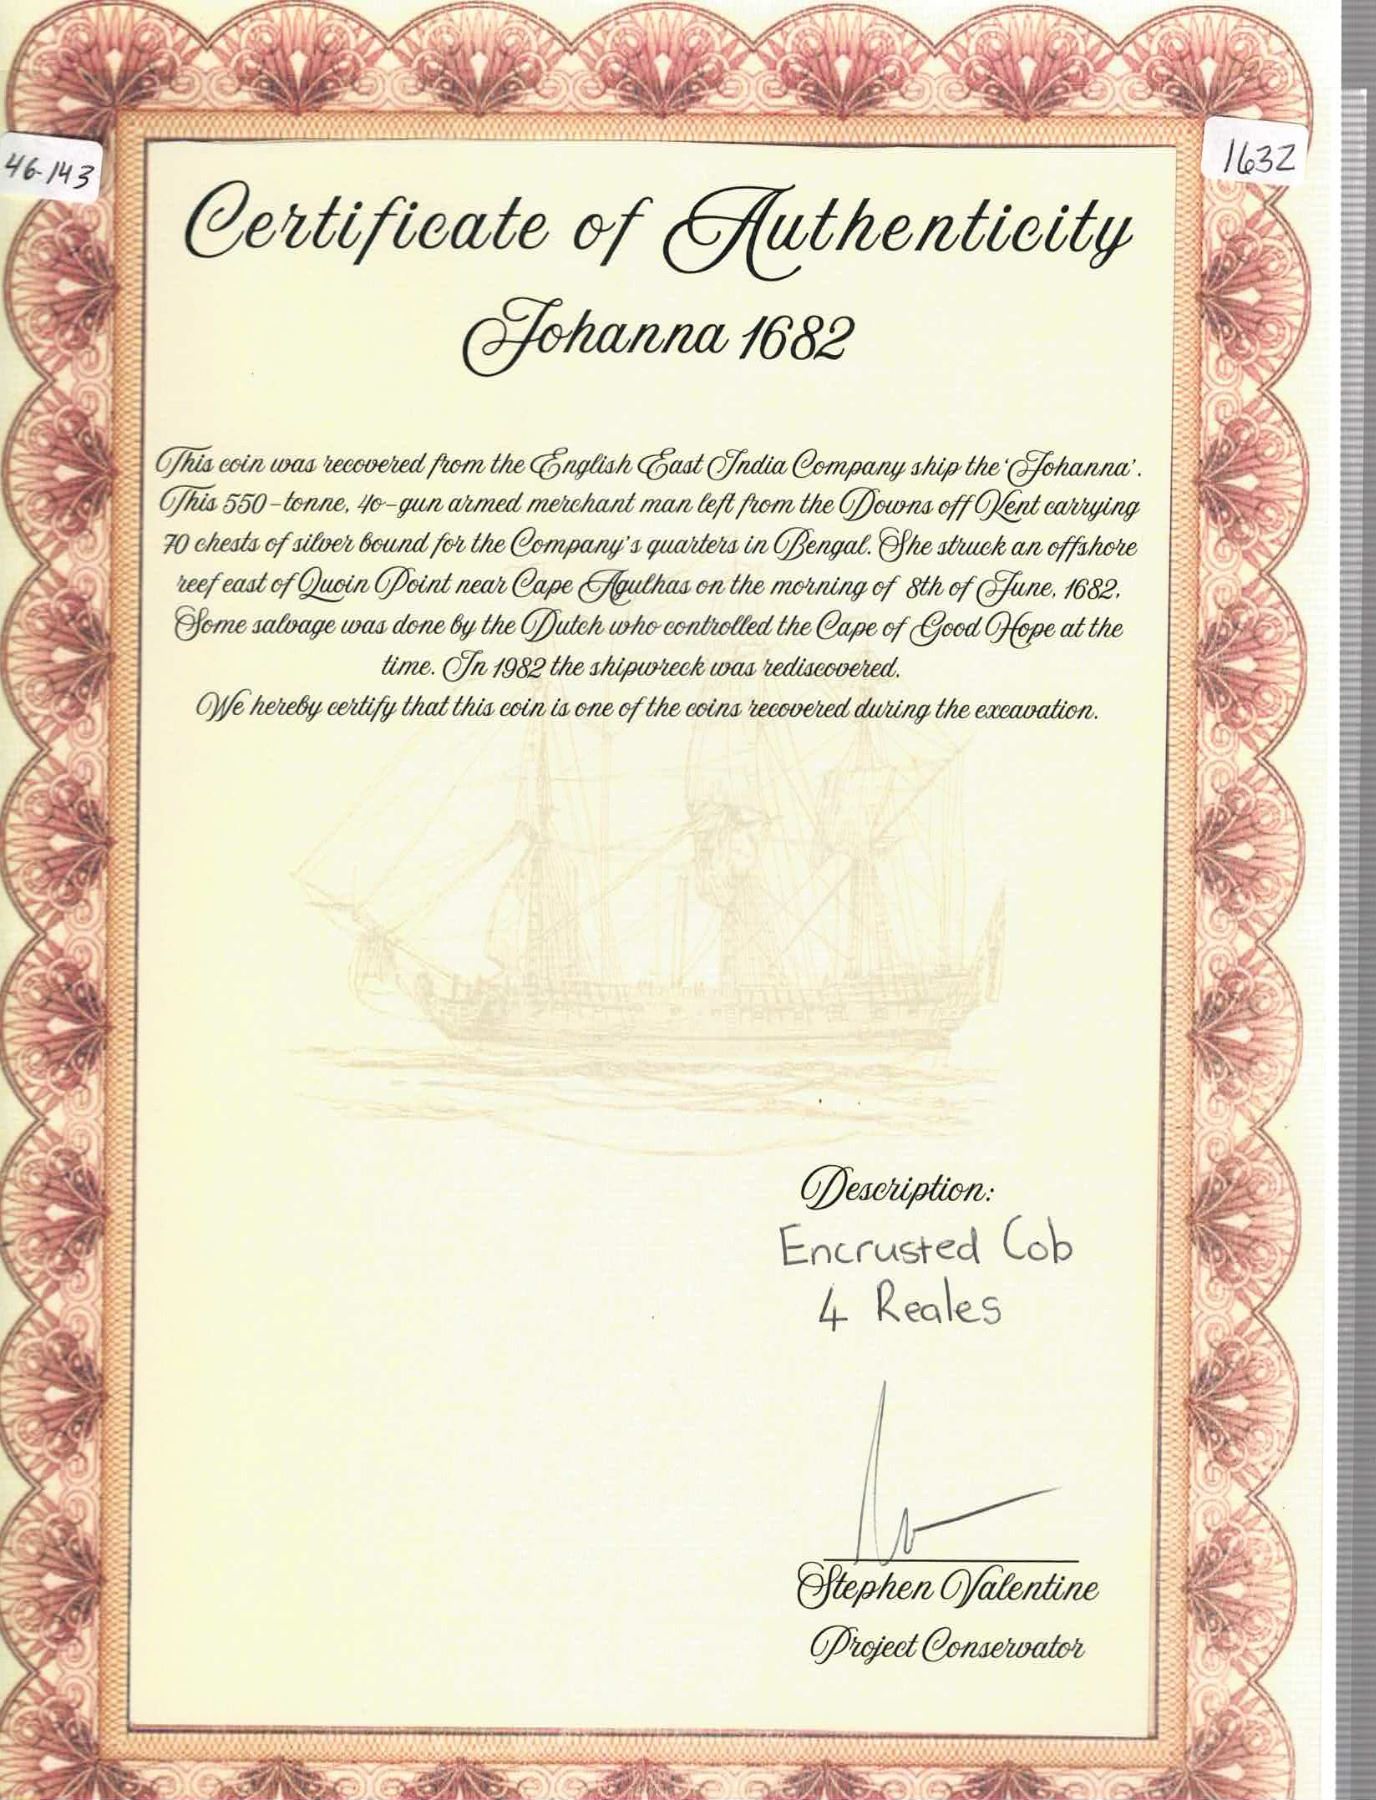 46-143
1632
Certificate of Authenticity
Johanna 1682
This coin was recovered from the English East India Company ship the 'Johanna'.
This 550-tonne, 40-gun armed merchant man left from the Downs off Kent carrying
70 chests of silver bound for the Company's quarters in Bengal. She struck an offshore
reef east of Quoin Point near Cape Agulhas on the morning of 8th of June, 1682.
Some salvage was done by the Dutch who controlled the Cape of Good Hope at the
time. In 1982 the shipwreck was rediscovered.
We hereby certify that this coin is one of the coins recovered during the excavation.
Description:
Encrusted Cob
4 Reales
Stephen Valentine
Project Conservator